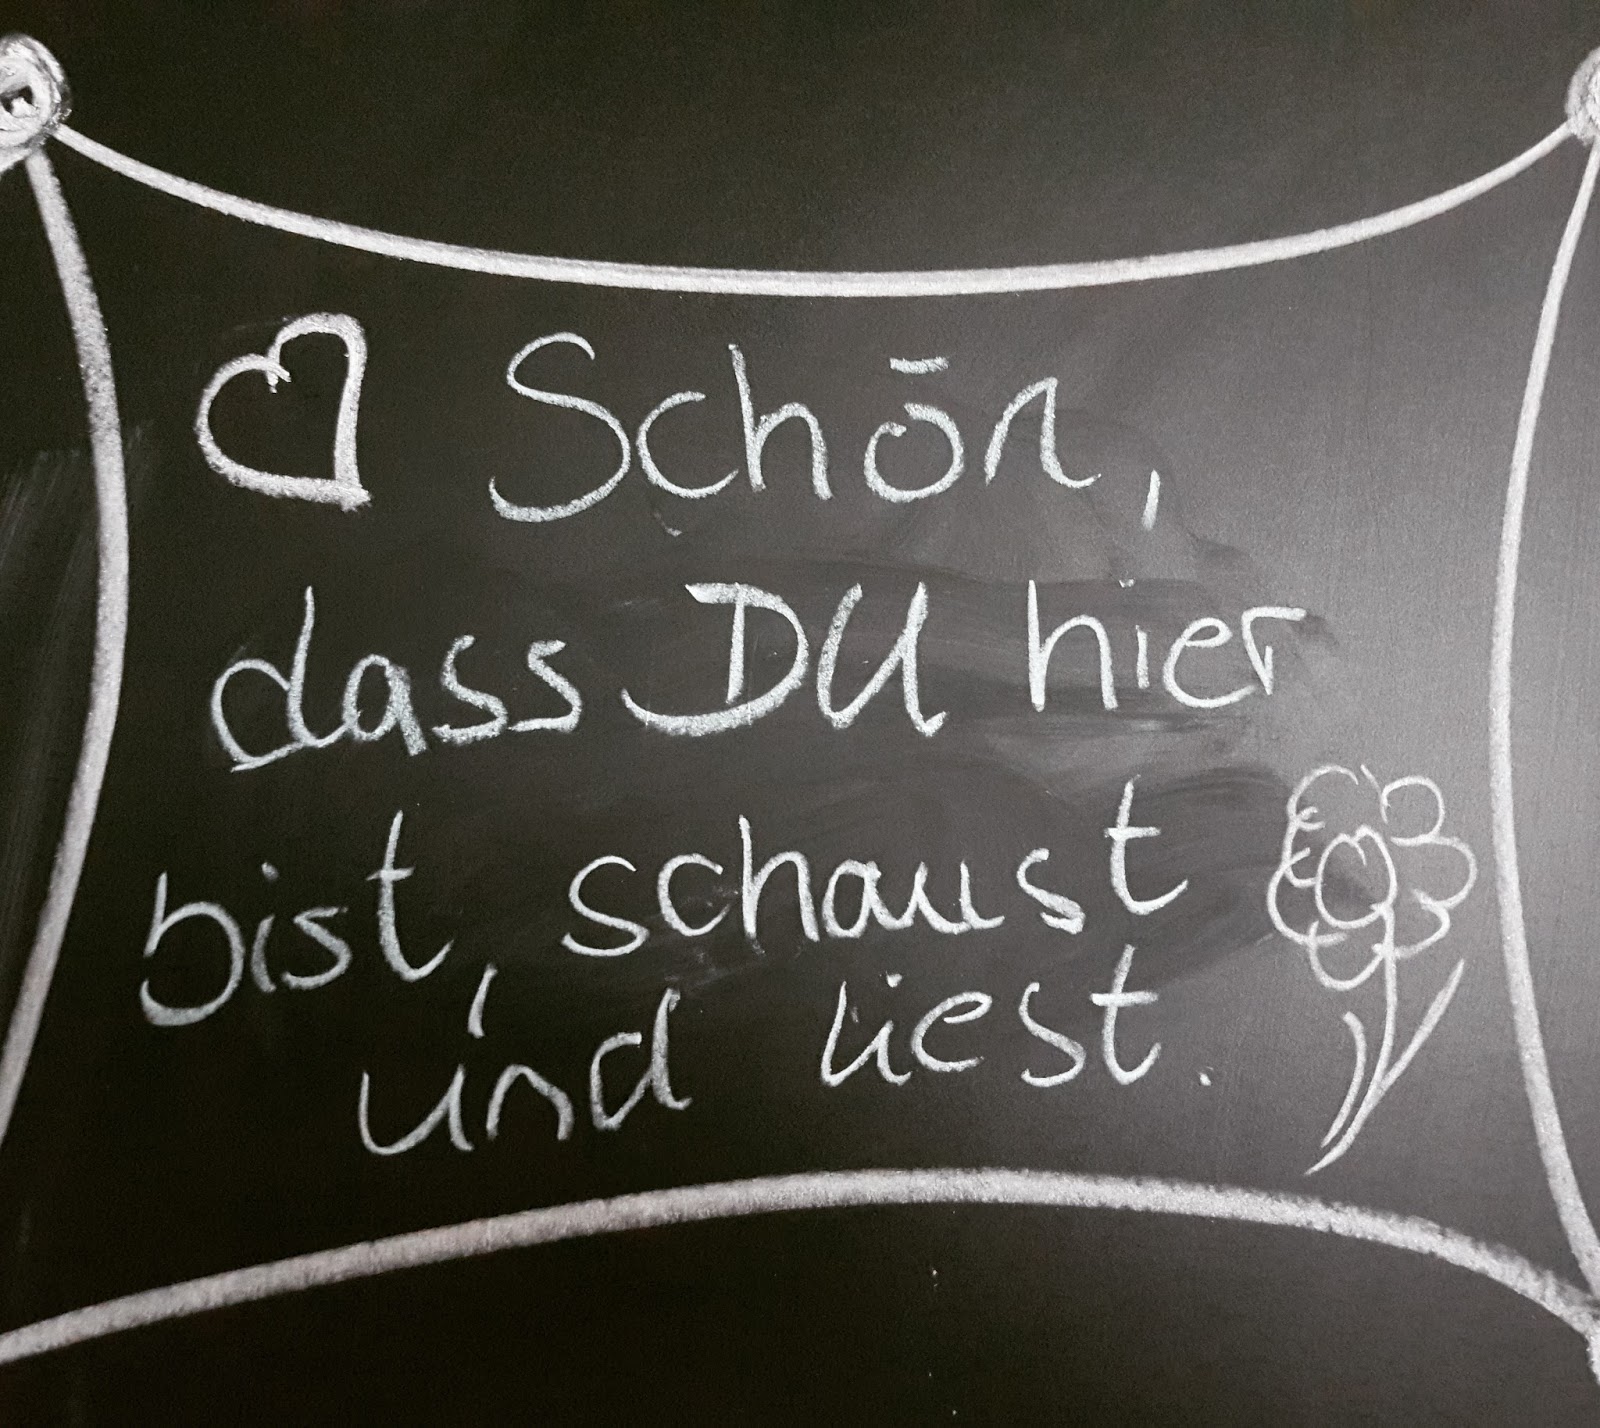 Schön,
dass DU hier
bist, schaust
und liest.